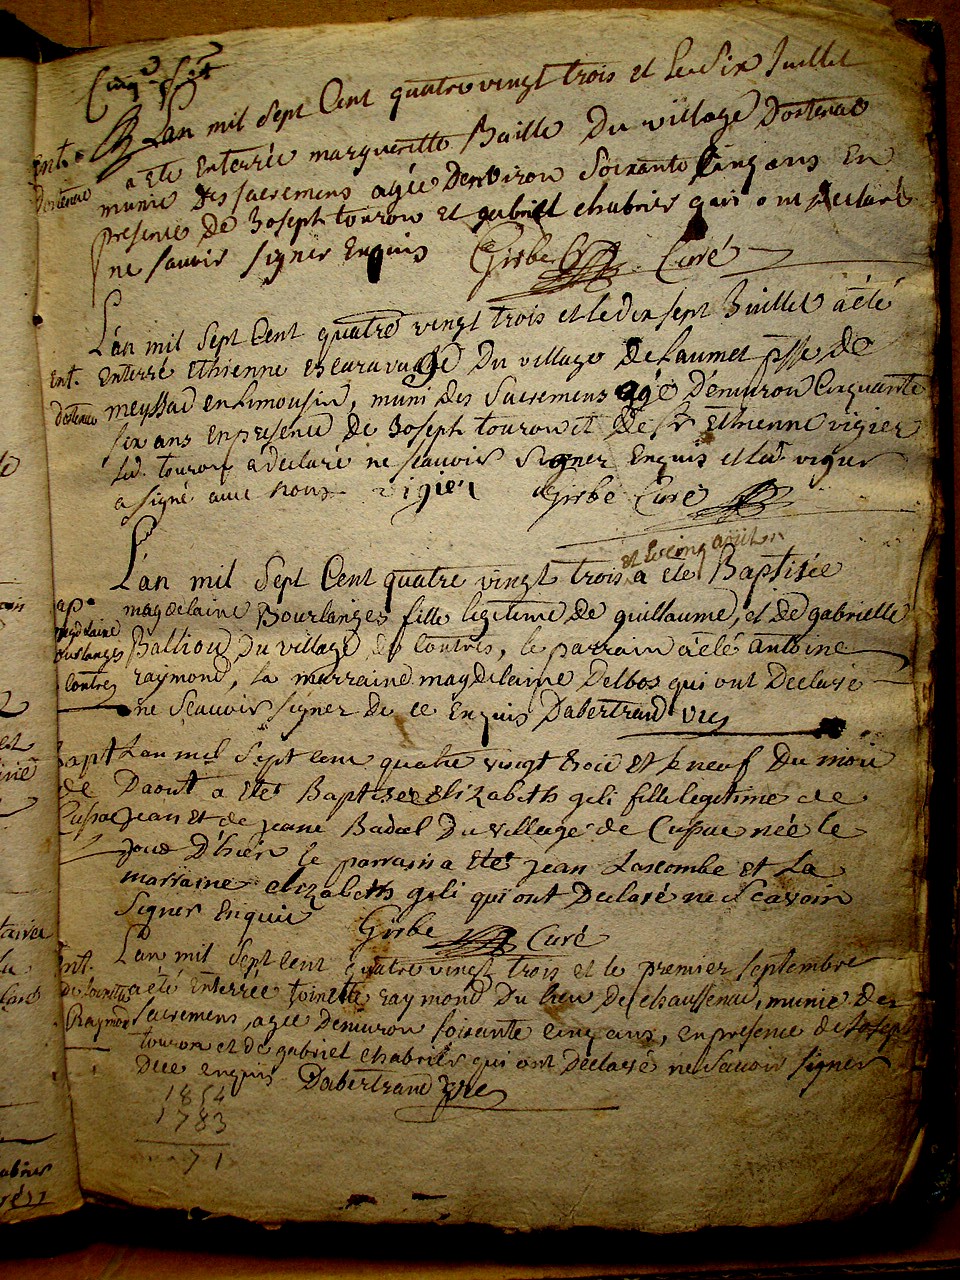 Cinq.e Six
Lan mil sept Cent quatre vingt trois et Le Six Juillet
Ent.
a eté Enterrée margueritte Baille Du village Dostenac
Dostenac
munie des sacremens agée Denviron Soixante Cinq ans En
presence de Joseph touron et gabriel chabrier qui ont declaré
ne savoir signer Enquis Girbe Curé
L'an mil Sept Cent quatre vingt trois et le dix sept Juillet a été
Ent.
Enterré Ethienne Du village de Laumet psse de
Dostenac
meyssac en Limousin, muni des Sacremens agé D'environ Cinquante
six ans en presence de Joseph touron et de Sr Ethienne vigier
Led. touron a declaré ne scavoir Signer Enquis et led. vigier
a signé avec nous vigier Girbe Curé
et Le cinq aout
L'an mil Sept Cent quatre vingt trois a eté Baptisée
Bap.
magdelaine Bourlanges fille legitime de guillaume, et de gabrielle
magdelaine
Balliou Du village de Contres, le parrain a été antoine
bourlanges
raymond, La marraine magdelaine Delbos qui ont Declaré
Contres
ne Scavoir signer De ce Enquis Dabertrand vic
Bapt Lan mil Sept cent quatre vingt trois et le neuf Du mois
de Daout a eté Baptisée Elizabeth geli fille legitime de
Cussac jean et de jeane Badal Du village de Cussac née le
jour D'hier le parrain a eté jean Lascombe et La
marraine elizabeth geli qui ont Declaré ne Scavoir
Signer Enquis Girbe Curé
L'an mil Sept Cent quatre vingt trois et le premier septembre
Ent.
a été Enterrée toinette raymond Du lieu De chaussenac, munie des
de toinette
Sacremens, agée Denviron soixante cinq ans, en presence de Joseph
Raymond
touron et de gabriel chabrier qui ont Declaré ne Scavoir signer
Dece enquis Dabertrand vic
1854
1783
71